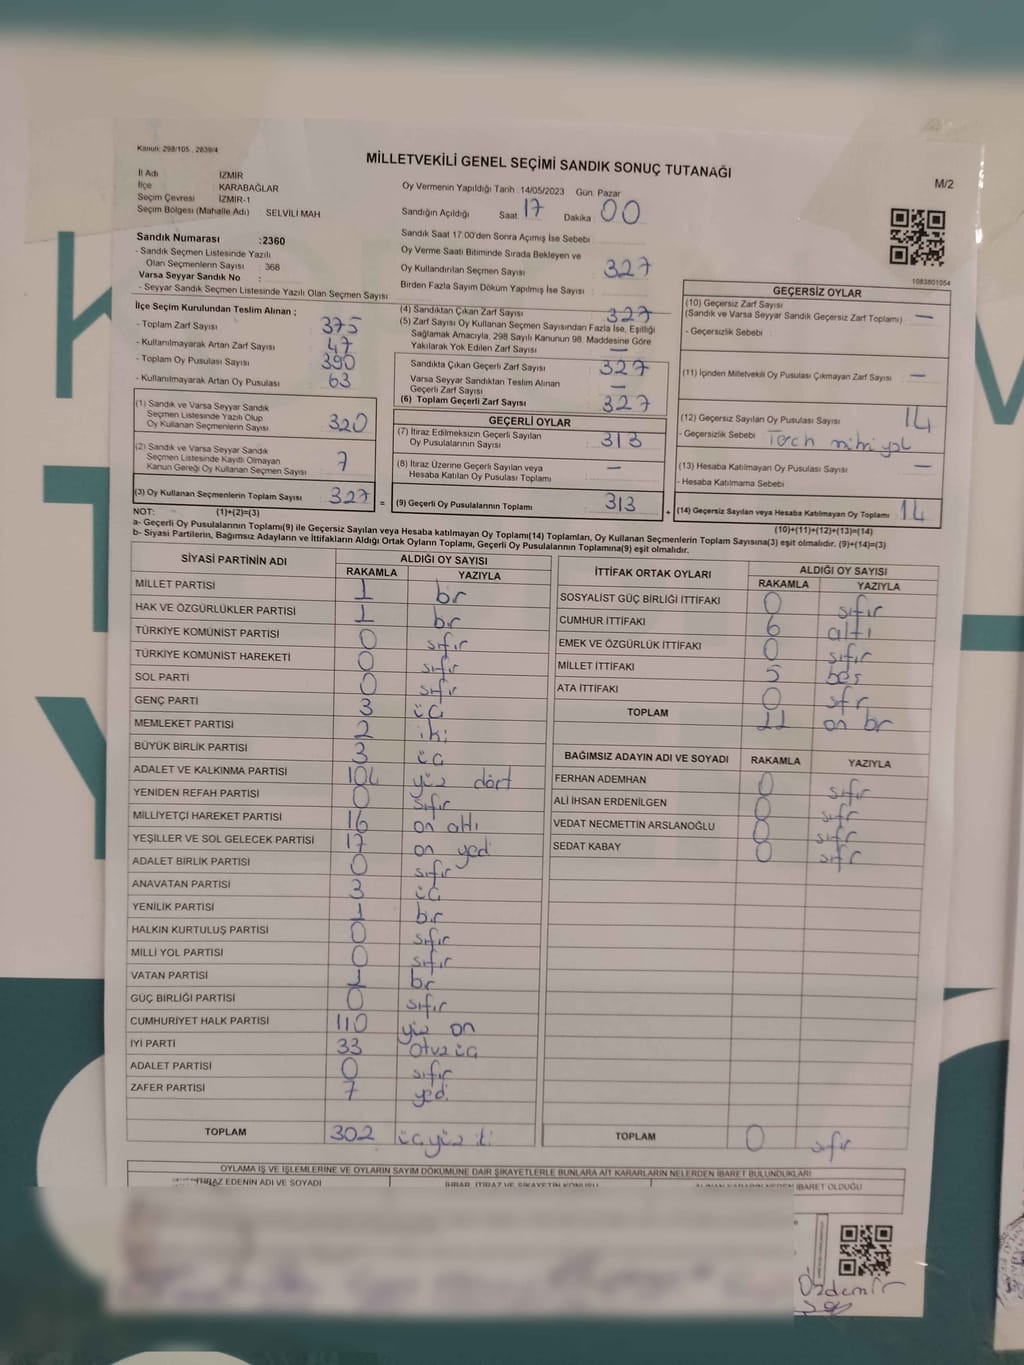 Kanun: 298/105 , 2839/4
MİLLETVEKİLİ GENEL SEÇİMİ SANDIK SONUÇ TUTANAĞI
M/2
İl Adı İZMİR
İlçe KARABAĞLAR
Seçim Çevresi İZMİR-1
Seçim Bölgesi (Mahalle Adı) : SELVİLİ MAH
Oy Vermenin Yapıldığı Tarih :14/05/2023 Gün: Pazar
Sandığın Açıldığı Saat: 17 Dakika : 00
Sandık Saat 17.00'den Sonra Açımış İse Sebebi :
Oy Verme Saati Bitiminde Sırada Bekleyen ve
Oy Kullandırılan Seçmen Sayısı 327
Birden Fazla Sayım Döküm Yapılmış İse Sayısı :
Sandık Numarası :2360
- Sandık Seçmen Listesinde Yazılı
Olan Seçmenlerin Sayısı : 368
Varsa Seyyar Sandık No :
- Seyyar Sandık Seçmen Listesinde Yazılı Olan Seçmen Sayısı
1083601054
İlçe Seçim Kurulundan Teslim Alınan ;
- Toplam Zarf Sayısı 375
- Kullanılmayarak Artan Zarf Sayısı 47
- Toplam Oy Pusulası Sayısı 390
- Kullanılmayarak Artan Oy Pusulası 63
(1) Sandık ve Varsa Seyyar Sandık
Seçmen Listesinde Yazılı Olup
Oy Kullanan Seçmenlerin Sayısı 320
(2) Sandık ve Varsa Seyyar Sandık
Seçmen Listesinde Kayıtlı Olmayan
Kanun Gereği Oy Kullanan Seçmen Sayısı 7
(3) Oy Kullanan Seçmenlerin Toplam Sayısı 327 =
(4) Sandıktan Çıkan Zarf Sayısı 327
(5) Zarf Sayısı Oy Kullanan Seçmen Sayısından Fazla İse, Eşitliği
Sağlamak Amacıyla, 298 Sayılı Kanunun 98. Maddesine Göre
Yakılarak Yok Edilen Zarf Sayısı —
Sandıkta Çıkan Geçerli Zarf Sayısı 327
Varsa Seyyar Sandıktan Teslim Alınan
Geçerli Zarf Sayısı —
(6) Toplam Geçerli Zarf Sayısı 327
GEÇERLİ OYLAR
(7) İtiraz Edilmeksizin Geçerli Sayılan
Oy Pusulalarının Sayısı 313
(8) İtiraz Üzerine Geçerli Sayılan veya
Hesaba Katılan Oy Pusulası Toplamı —
(9) Geçerli Oy Pusulalarının Toplamı 313 +
GEÇERSİZ OYLAR
(10) Geçersiz Zarf Sayısı
(Sandık ve Varsa Seyyar Sandık Geçersiz Zarf Toplamı) —
- Geçersizlik Sebebi :
(11) İçinden Milletvekili Oy Pusulası Çıkmayan Zarf Sayısı —
(12) Geçersiz Sayılan Oy Pusulası Sayısı 14
- Geçersizlik Sebebi
(13) Hesaba Katılmayan Oy Pusulası Sayısı —
- Hesaba Katılmama Sebebi
(14) Geçersiz Sayılan veya Hesaba Katılmayan Oy Toplamı 14
NOT: (1)+(2)=(3) (10)+(11)+(12)+(13)=(14)
a- Geçerli Oy Pusulalarının Toplamı(9) ile Geçersiz Sayılan veya Hesaba katılmayan Oy Toplamı(14) Toplamları, Oy Kullanan Seçmenlerin Toplam Sayısına(3) eşit olmalıdır. (9)+(14)=(3)
b- Siyasi Partilerin, Bağımsız Adayların ve İttifakların Aldığı Ortak Oyların Toplamı, Geçerli Oy Pusulalarının Toplamına(9) eşit olmalıdır.
SİYASİ PARTİNİN ADI ALDIĞI OY SAYISI
RAKAMLA YAZIYLA
MİLLET PARTİSİ 1 bir
HAK VE ÖZGÜRLÜKLER PARTİSİ 1 bir
TÜRKİYE KOMÜNİST PARTİSİ 0 sıfır
TÜRKİYE KOMÜNİST HAREKETİ 0 sıfır
SOL PARTİ 0 sıfır
GENÇ PARTİ 3 üç
MEMLEKET PARTİSİ 2 iki
BÜYÜK BİRLİK PARTİSİ 3 üç
ADALET VE KALKINMA PARTİSİ 104 yüz dört
YENİDEN REFAH PARTİSİ 0 sıfır
MİLLİYETÇİ HAREKET PARTİSİ 16 on altı
YEŞİLLER VE SOL GELECEK PARTİSİ 17 on yedi
ADALET BİRLİK PARTİSİ 0 sıfır
ANAVATAN PARTİSİ 3 üç
YENİLİK PARTİSİ 1 bir
HALKIN KURTULUŞ PARTİSİ 0 sıfır
MİLLİ YOL PARTİSİ 0 sıfır
VATAN PARTİSİ 1 bir
GÜÇ BİRLİĞİ PARTİSİ 0 sıfır
CUMHURİYET HALK PARTİSİ 110 yüz on
İYİ PARTİ 33 otuz üç
ADALET PARTİSİ 0 sıfır
ZAFER PARTİSİ 7 yedi
TOPLAM 302 üçyüz iki
İTTİFAK ORTAK OYLARI ALDIĞI OY SAYISI
RAKAMLA YAZIYLA
SOSYALİST GÜÇ BİRLİĞİ İTTİFAKI 0 sıfır
CUMHUR İTTİFAKI 6 altı
EMEK VE ÖZGÜRLÜK İTTİFAKI 0 sıfır
MİLLET İTTİFAKI 5 beş
ATA İTTİFAKI 0 sıfır
TOPLAM 11 on bir
BAĞIMSIZ ADAYIN ADI VE SOYADI RAKAMLA YAZIYLA
FERHAN ADEMHAN 0 sıfır
ALİ İHSAN ERDENİLGEN 0 sıfır
VEDAT NECMETTİN ARSLANOĞLU 0 sıfır
SEDAT KABAY 0 sıfır
TOPLAM 0 sıfır
OYLAMA İŞ VE İŞLEMLERİNE VE OYLARIN SAYIM DÖKÜMÜNE DAİR ŞİKAYETLERLE BUNLARA AİT KARARLARIN NELERDEN İBARET BULUNDUKLARI
EDENİN ADI VE SOYADI İBARET OLDUĞU
Özdemir